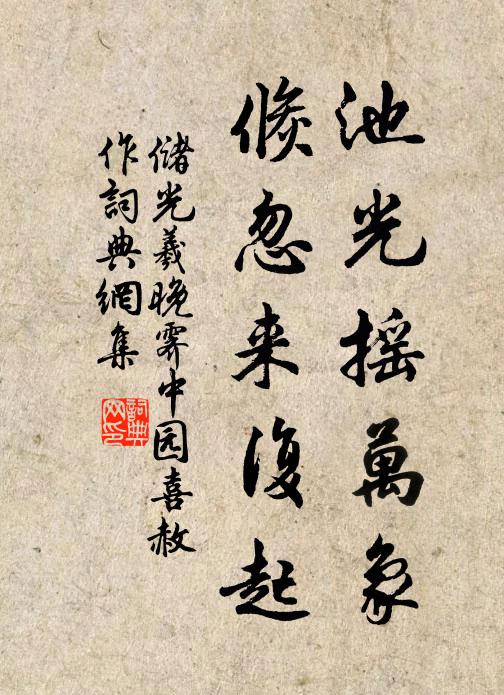 池光摇萬象
倐忽来復起
儲光羲晚霽中园喜赦
作詞典網集
詞典
网印